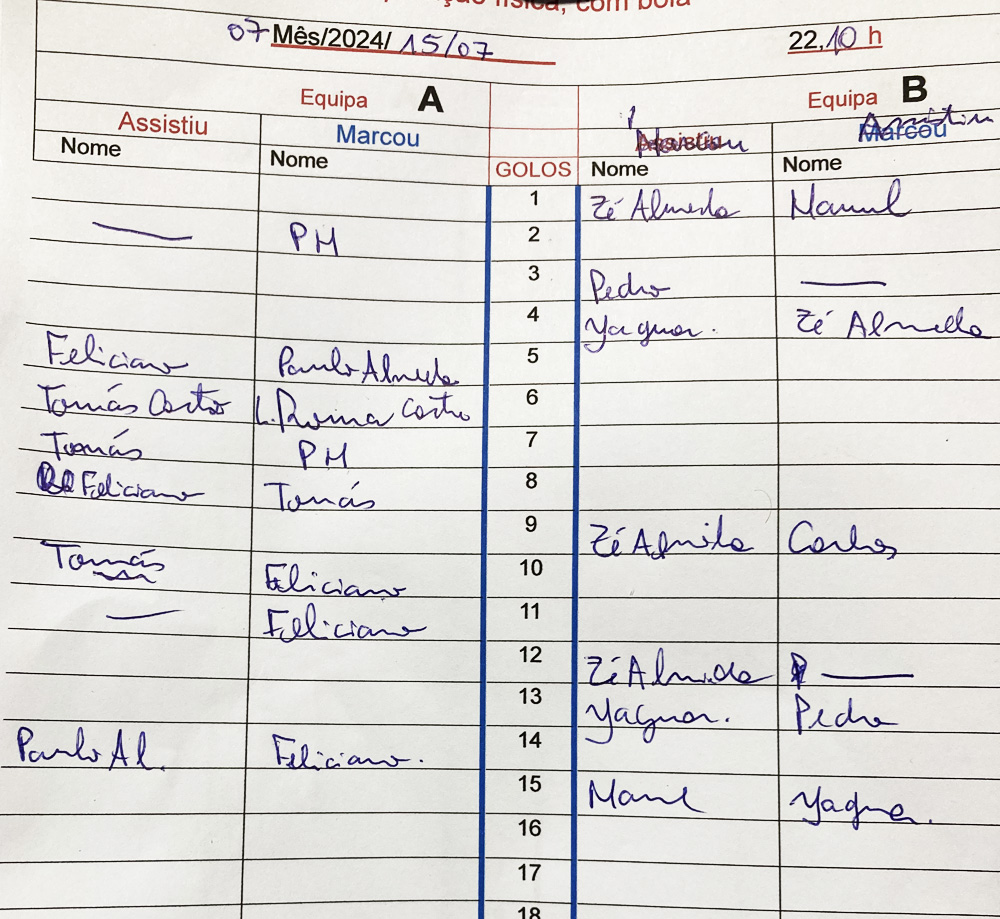 com bola
07 Mês/2024/ 15/07 22,10 h
Equipa A Equipa B
Assistiu Marcou Marcou Assistiu
Nome Nome GOLOS Nome Nome
1 Zé Almeida Manuel
— PM 2
3 Pedro —
4 Yaguor. Zé Almeida
Feliciano Paulo Almeida 5
Tomás Castro L. Roma Castro 6
Tomás PM 7
Feliciano Tomás 8
9 Zé Almeida Carlos
Tomás Feliciano 10
— Feliciano 11
12 Zé Almeida —
13 Yaguor. Pedro
Paulo Al. Feliciano. 14
15 Manuel Yaguor.
16
17
18